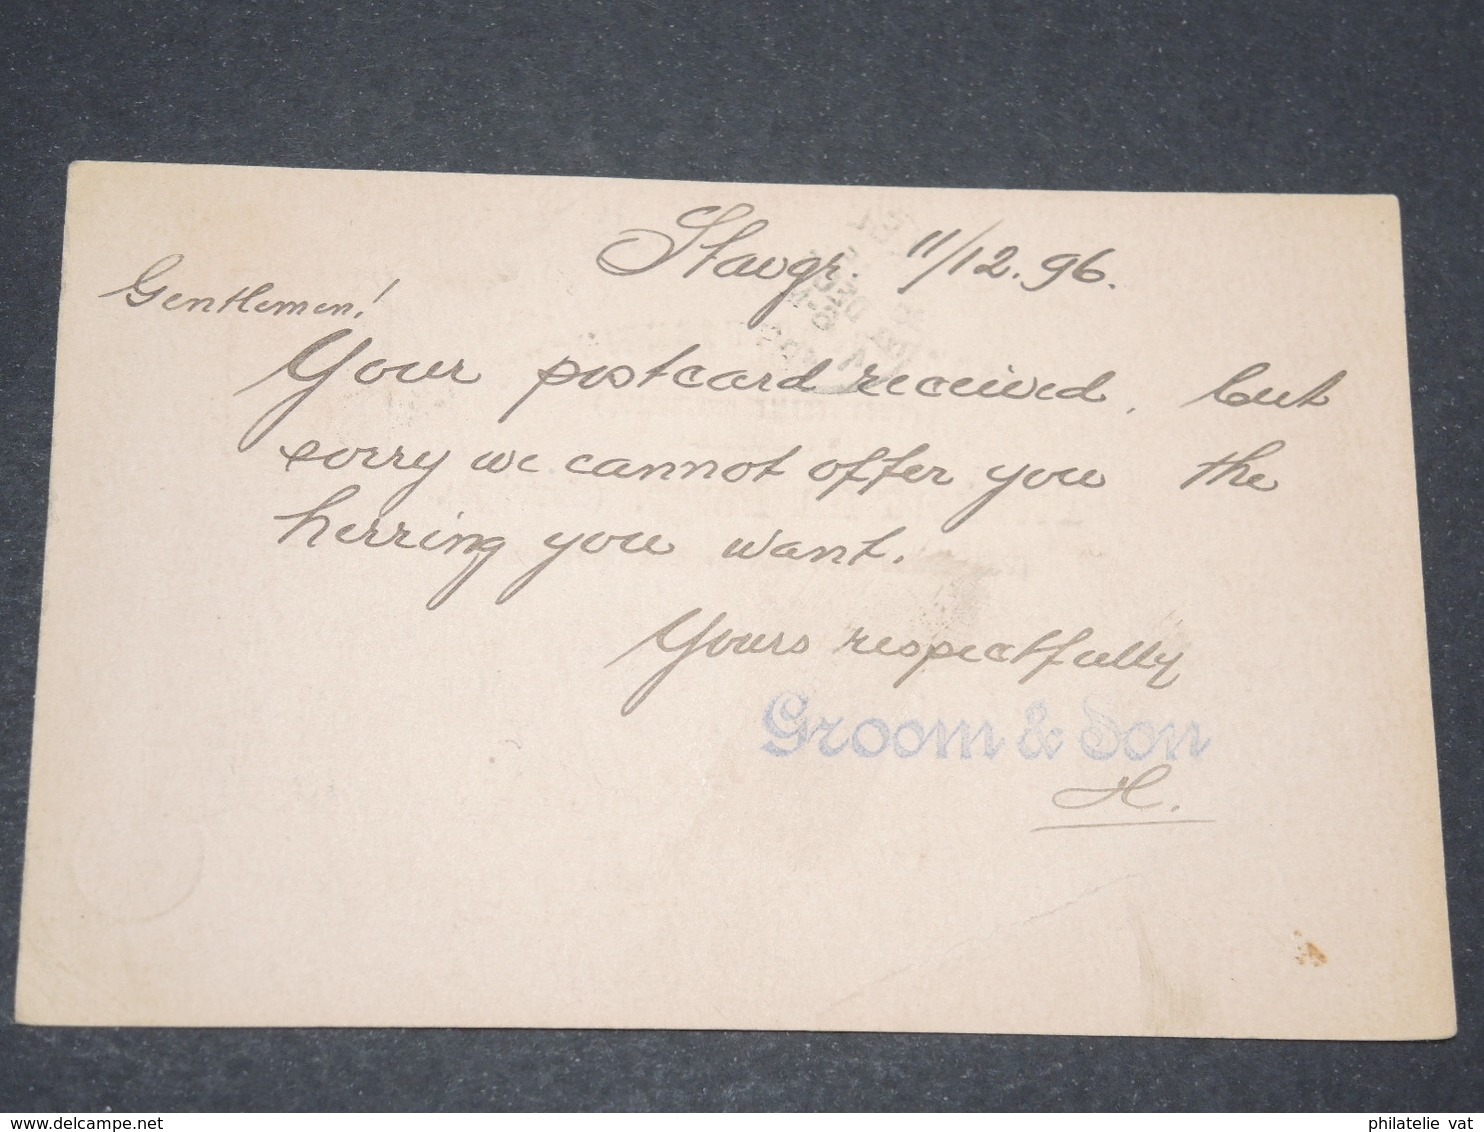 Stavgr. 11/12.96.
Gentlemen!
Your postcard received, but
sorry we cannot offer you the
herring you want.
Yours respectfully
Groom & Son
H.
www.delcampe.net
philatelie vat